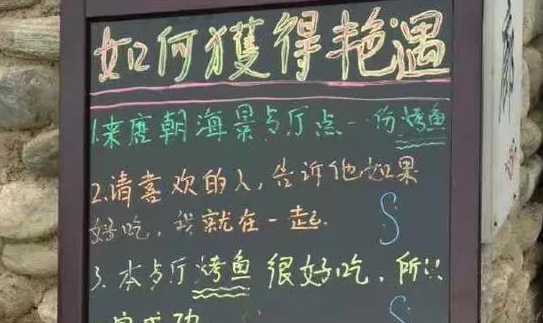 如何獲得艳遇
1.来唐朝海景与厅点一份烤鱼
2.请喜欢的人,告诉他如果
好吃,我就在一起.
3.本与厅烤鱼很好吃.所以
一定成功